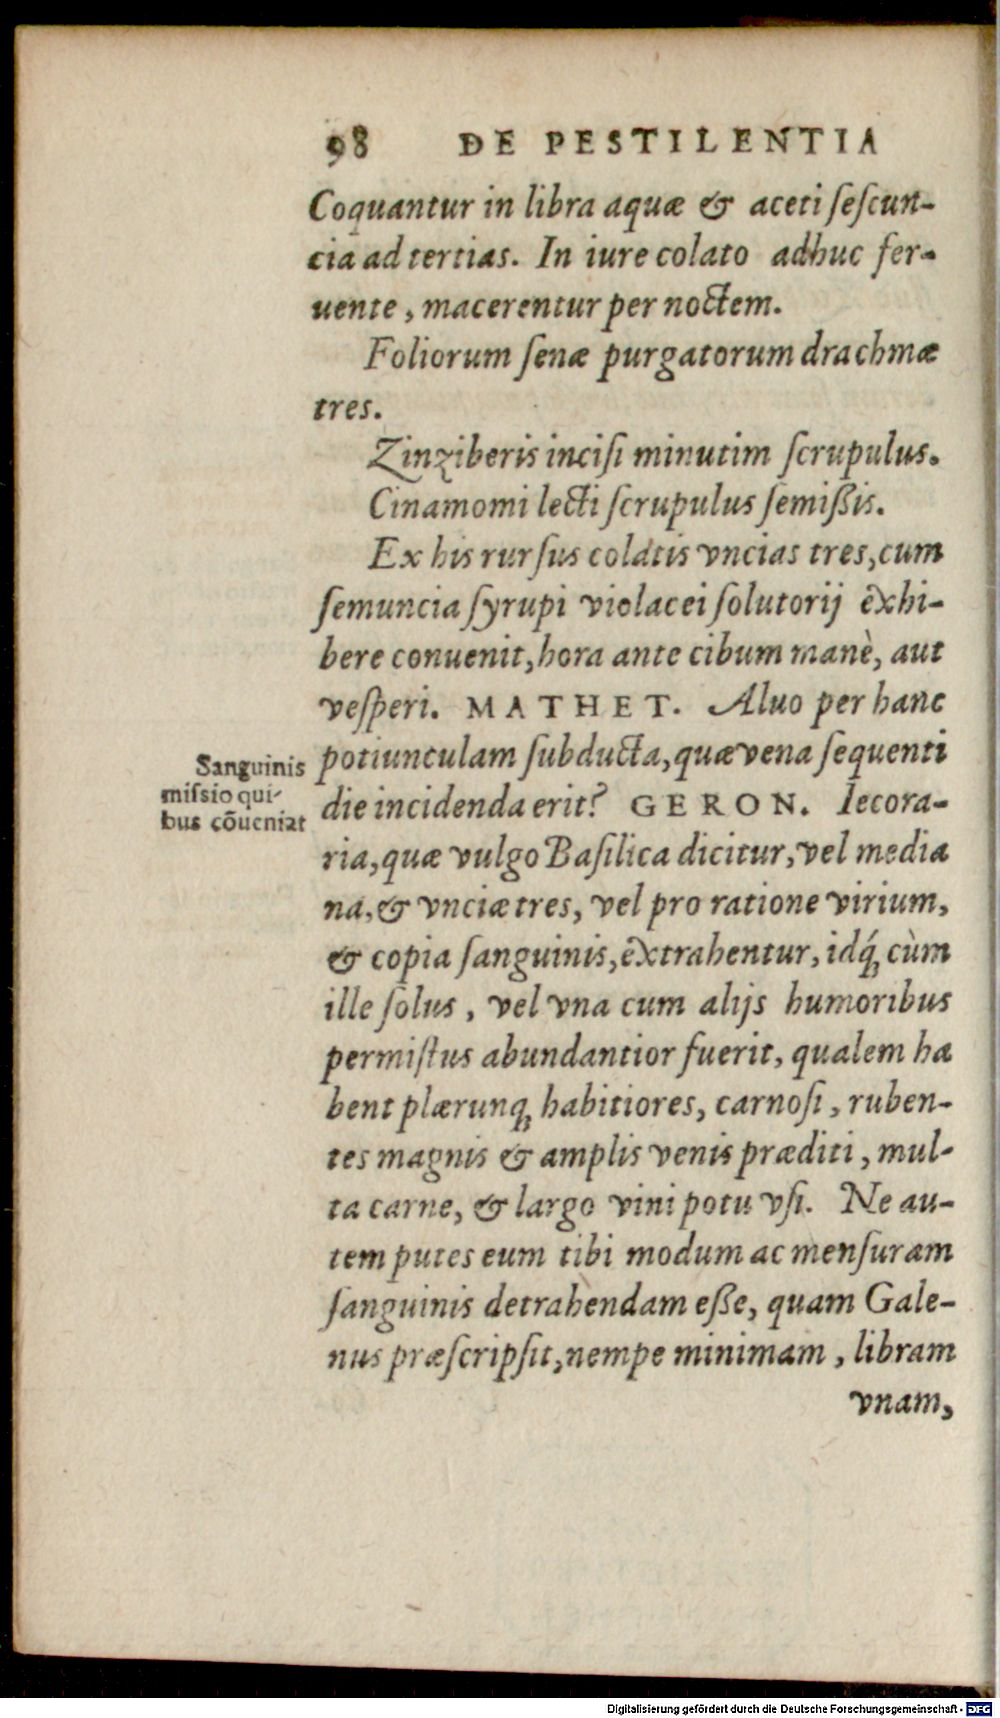 98 DE PESTILENTIA
Coquantur in libra aquæ & aceti ſeſcun-
cia ad tertias. In iure colato adhuc fer-
uente, macerentur per noctem.
Foliorum ſenæ purgatorum drachmæ
tres.
Zinziberis inciſi minutim ſcrupulus.
Cinamomi lecti ſcrupulus ſemißis.
Ex his rurſus colatis vncias tres, cum
ſemuncia ſyrupi violacei ſolutorij exhi-
bere conuenit, hora ante cibum manè, aut
veſperi. MATHET. Aluo per hanc
potiunculam ſubducta, quæ vena ſequenti
die incidenda erit? GERON. Iecora-
ria, quæ vulgo Baſilica dicitur, vel media
na, & vnciæ tres, vel pro ratione virium,
& copia ſanguinis, extrahentur, idq́; cùm
ille ſolus, vel vna cum alijs humoribus
permiſtus abundantior fuerit, qualem ha
bent plærunq; habitiores, carnoſi, ruben-
tes magnis & amplis venis præditi, mul-
ta carne, & largo vini potu vſi. Ne au-
tem putes eum tibi modum ac menſuram
ſanguinis detrahendam eße, quam Gale-
nus præſcripſit, nempe minimam, libram
vnam,
Sanguinis
miſsio qui-
bus cõueniat
Digitalisierung gefördert durch die Deutsche Forschungsgemeinschaft - DFG